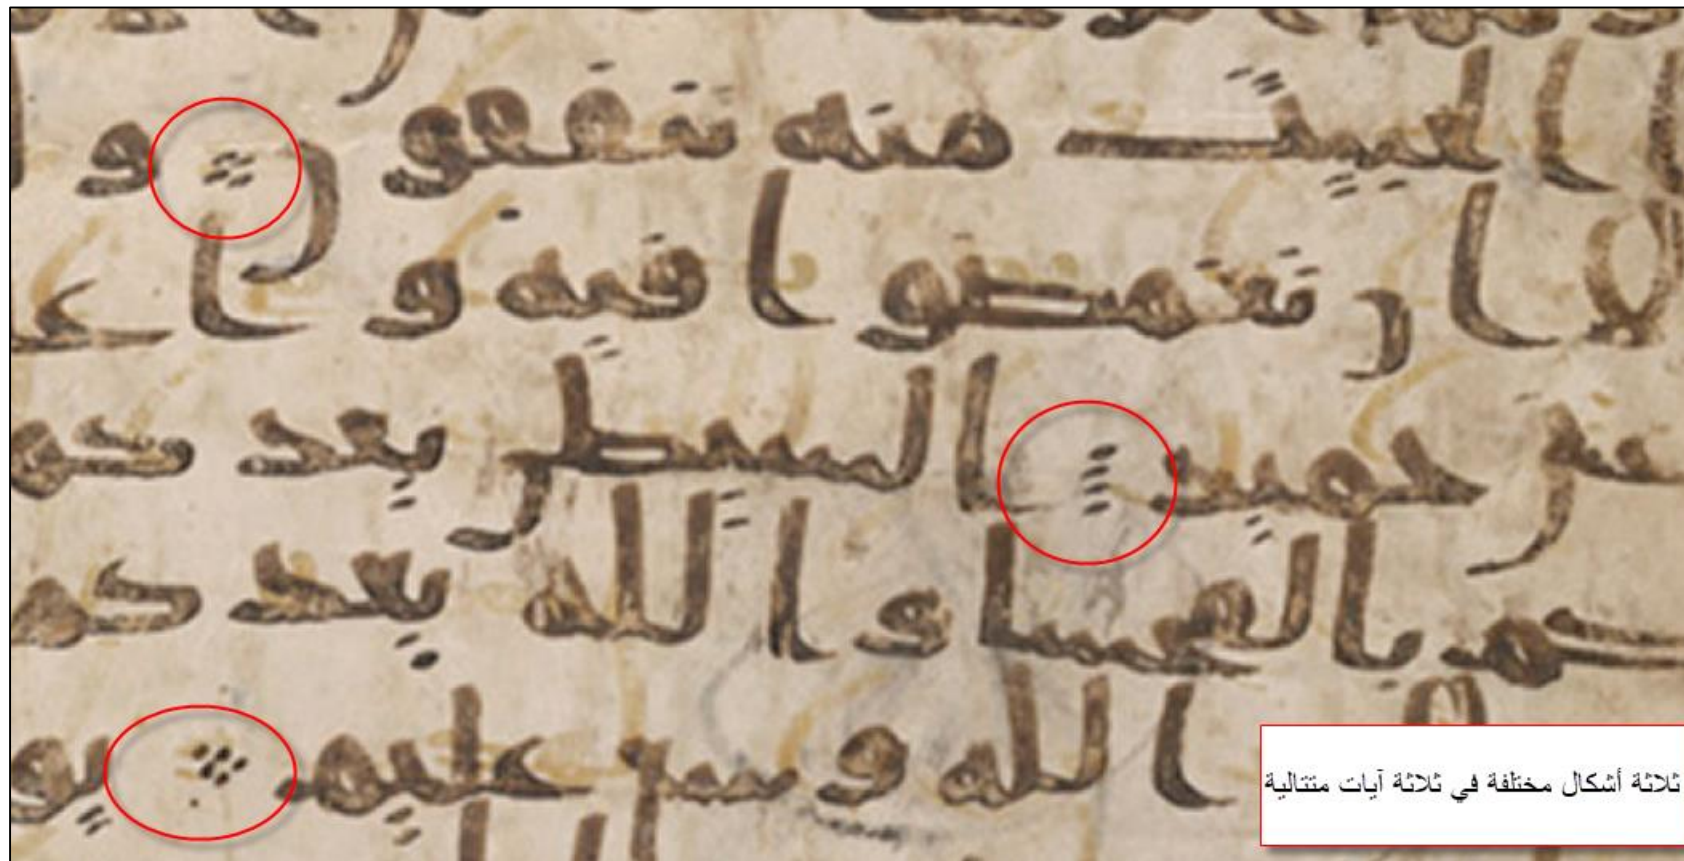 الخبيث منه تنفقون و
الا ان تغمضوا فيه و ا
حميد الشيطن يعد كم
كم بالفحشا و الله يعد كم
الله وسع عليم يو
ثلاثة أشكال مختلفة في ثلاثة آيات متتالية